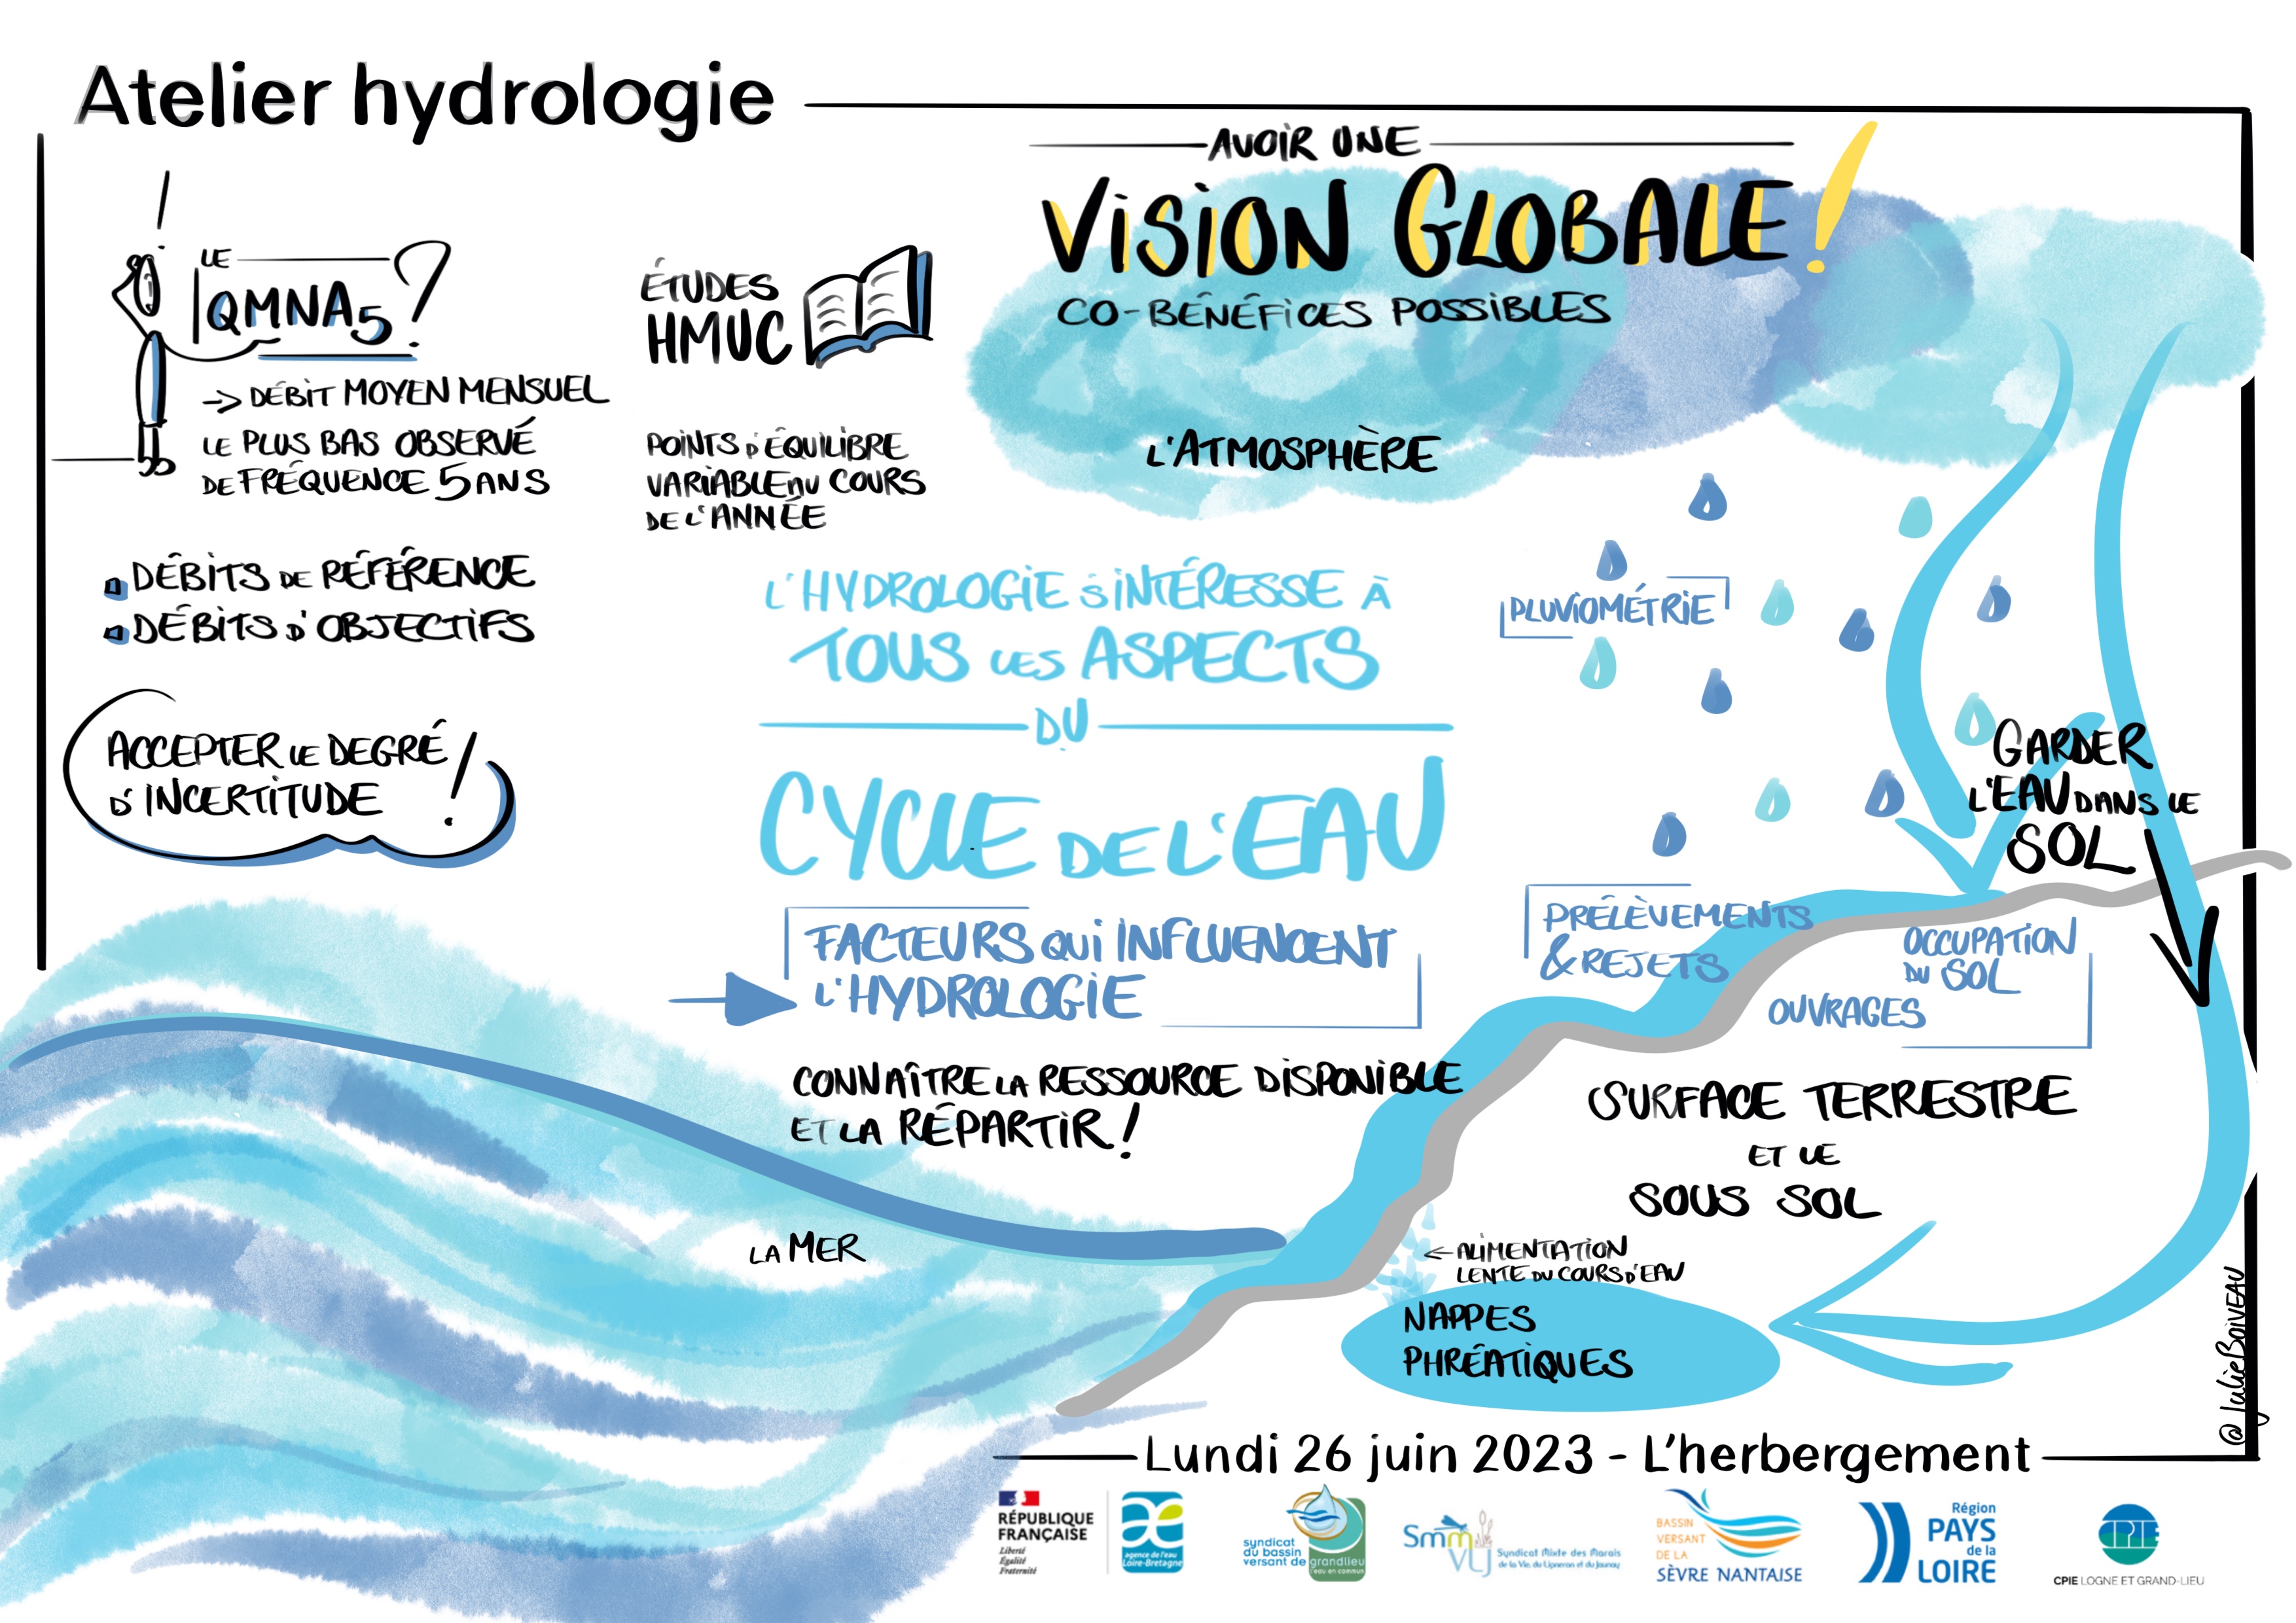 Atelier hydrologie
LE
QMNA5 ?
→ DÉBIT MOYEN MENSUEL
LE PLUS BAS OBSERVÉ
DE FRÉQUENCE 5 ANS
DÉBITS DE RÉFÉRENCE
DÉBITS D'OBJECTIFS
ACCEPTER LE DEGRÉ
D'INCERTITUDE !
ÉTUDES
HMUC
POINTS D'ÉQUILIBRE
VARIABLE AU COURS
DE L'ANNÉE
AVOIR UNE
VISION GLOBALE !
CO-BÉNÉFICES POSSIBLES
L'ATMOSPHÈRE
L'HYDROLOGIE S'INTÉRESSE À
TOUS LES ASPECTS
DU
CYCLE DE L'EAU
FACTEURS QUI INFLUENCENT
L'HYDROLOGIE
CONNAÎTRE LA RESSOURCE DISPONIBLE
ET LA RÉPARTIR !
LA MER
PLUVIOMÉTRIE
GARDER
L'EAU DANS LE
SOL
PRÉLÈVEMENTS
& REJETS
OCCUPATION
DU SOL
OUVRAGES
SURFACE TERRESTRE
ET LE
SOUS SOL
← ALIMENTATION
LENTE DU COURS D'EAU
NAPPES
PHRÉATIQUES
@JulieBOIVEAU
Lundi 26 juin 2023 - L'herbergement
RÉPUBLIQUE
FRANÇAISE
Liberté
Égalité
Fraternité
agence de l'eau
Loire-Bretagne
syndicat
du bassin
versant de grandlieu
l'eau en commun
SmmVLJ
Syndicat Mixte des Marais
de la Vie, du Ligneron et du Jaunay
BASSIN
VERSANT
DE LA
SÈVRE NANTAISE
Région
PAYS
de la
LOIRE
CPIE
CPIE LOGNE ET GRAND-LIEU